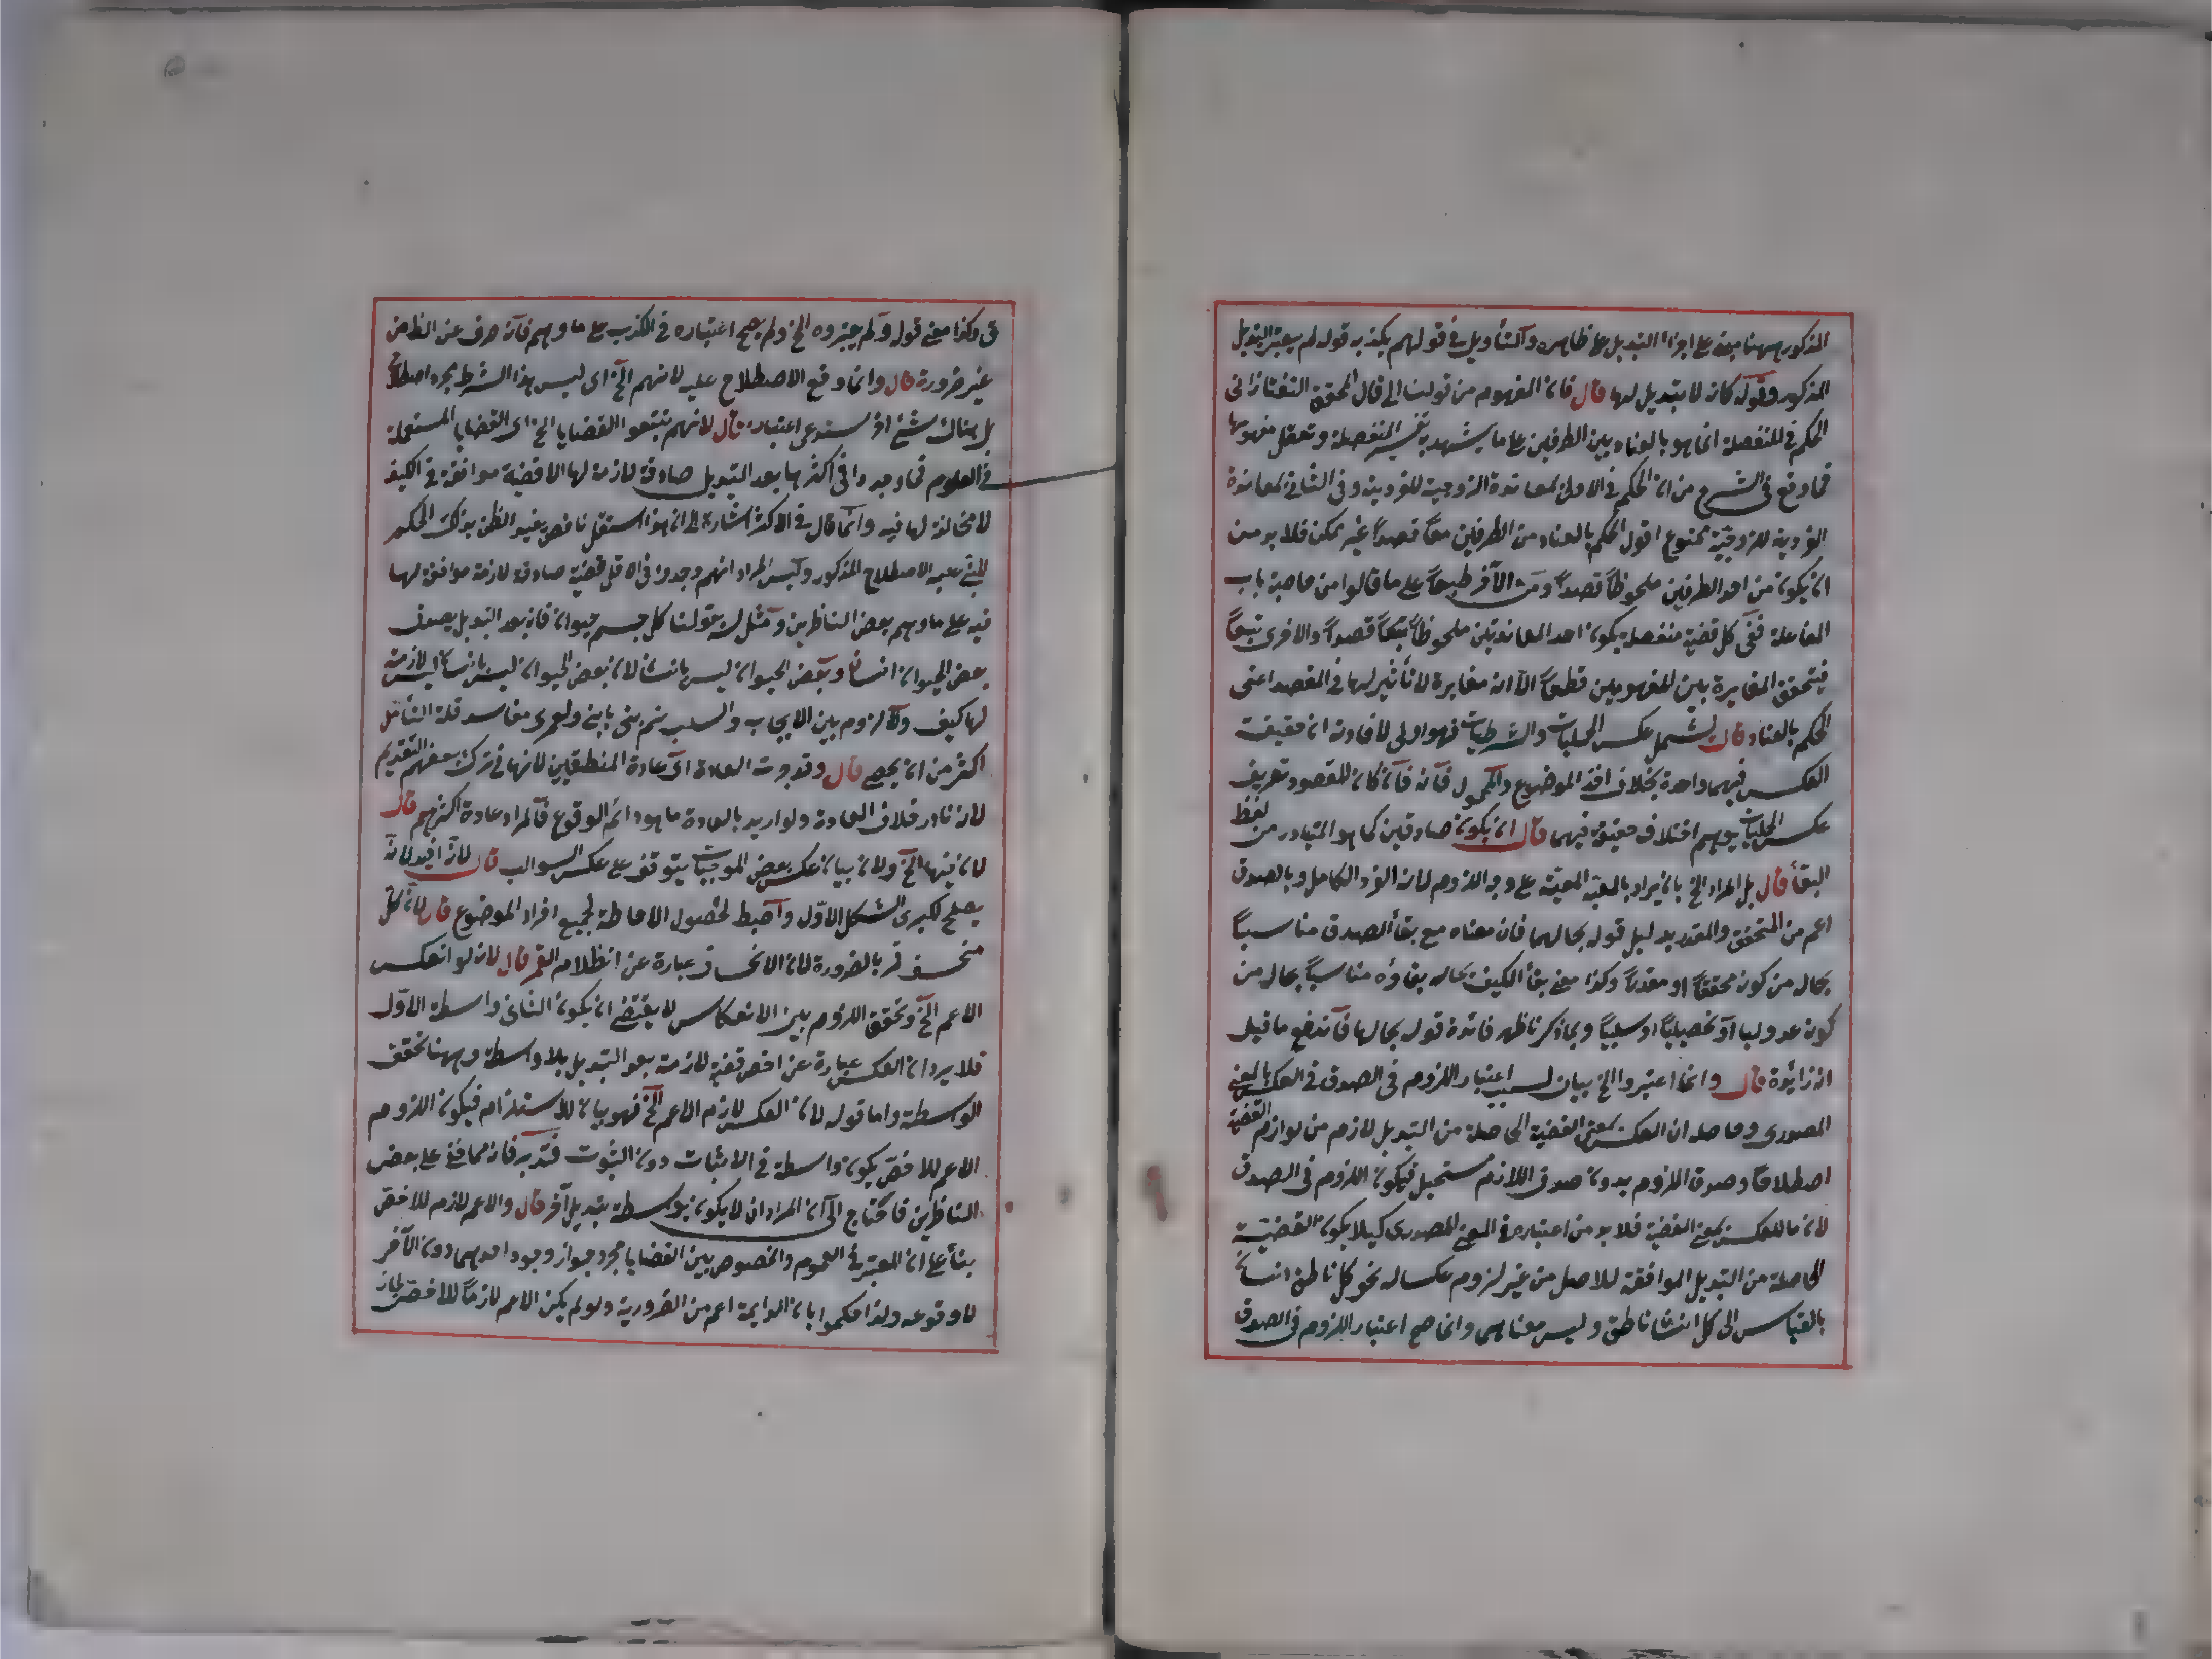 المذكور ههنا مبنى على اجزاء التبديل على ظاهره والتأويل في قولهم يكذبه قوله لم يعتبر التبديل
المذكور وقوله كانه لا تبديل لها قال فان المفهوم من قولنا الى قال المحقق التفتازانى
الحكم في المنفصلة انما هو بالعناد بين الطرفين على ما يشهد به تفسير المنفصلة وتعقل مفهومها
فما وقع في الشرح من ان الحكم في الاول بمعاندة الزوجية للفردية وفي الثاني بمعاندة
الفردية للزوجية ممنوع اقول الحكم بالعناد من الطرفين معًا قصدًا غير ممكن فلا بد من
ان يكون من احد الطرفين ملحوظًا قصدًا ومن الآخر طبعًا على ما قالوا من خاصية باب
المفاعلة ففى كل قضية منفصلة يكون احد المعاندتين ملحوظًا قصدًا والاخرى تبعًا
فيتحقق المغايرة بين المفهومين قطعًا الا انه مغايرة لا تأثير لها في المقصد اعنى
الحكم بالعناد قال ليشمل عكس الحمليات والشرطيات فهو اولى لافادته ان حقيقة
العكس فيهما واحدة بخلاف اخذ الموضوع والمحمول فانه كان المقصود تعريف
عكس الحمليات يوهم اختلاف حقيقته فيهما قال ان يكون صادقين كما هو المتبادر من لفظ
البقأ قال بل المراد الخ بان يراد بالمعية المعية على وجه اللزوم لانه الفرد الكامل وبالصدق
اعم من المتحقق والمقدر بدليل قوله بحالهما فان معناه مع بقأ الصدق مناسبًا
بحاله من كونه محققًا او مقدرًا وكذا معنى بقأ الكيف بحاله بقاؤه مناسبًا بحاله من
كونه عدوليا او تحصيليًا او سلبيًا وبما ذكرنا ظهر فائدة قوله بحالها فاندفع ما قيل
انه زائدة قال وانما اعتبروا الخ بيان لسبب اعتبار اللزوم في الصدق في العكس بالمعنى
المصدرى وحاصله ان العكس بمعنى القضية الحاصلة من التبديل لازم من لوازم القضية
اصطلاحًا وصدق الملزوم بدون صدق اللازم مستحيل فيكون اللزوم في الصدق
لازما للعكس بمعنى القضية فلا بد من اعتباره في المعنى المصدرى كيلا يكون القضية
الحاصلة من التبديل الموافقة للاصل من غير لزوم عكسا له نحو كل ناطق انسان
بالقياس الى كل انسان ناطق وليس معناه وانما صح اعتبار اللزوم في الصدق
ق وكذا معنى قوله ولم يعتبروه الخ ولم يصح اعتباره في الكذب على ما وهم فانه صرف عن الظ من
غير ضرورة قال وانما وقع الاصطلاح عليه لانهم الخ اى ليس هذا الشرط مجرد اصطلاح
بل هناك شئ آخر يستدعى اعتباره قال لانهم تتبعوا القضايا الخ اى القضايا المستعملة
في العلوم فما وجدوا في اكثرها بعد التبديل صادقة لازمة لها الا قضية موافقة في الكيف
لا مخالفة لها فيه وانما قال في الاكثر اشارة الى ان هذا استقراء ناقص يفيد الظن بذلك الحكم
المبنى عليه الاصطلاح المذكور وليس المراد انهم وجدوا في الاقل قضية صادقة لازمة موافقة لها
فيه على ما وهم بعض الناظرين ومثل له بقولنا كل جسم حيوان فانه بعد التبديل يصدق
بعض الحيوان انسان وبعض الحيوان ليس بانسان لان بعض الحيوان ليس بانسان ليس لازمة
لها كيف ولا لزوم بين الايجاب والسلب ولعمرى مفاسد قلة التأمل
اكثر من ان يحصى قال وقد جرت العادة اى عادة المنطقيين لا في ترك بعضهم التقديم
لانه نادر خلاف العادة ولو اريد بالعادة ما هو دائم الوقوع فالمراد عادة اكثرهم قال
لان فيها الخ ولان بيان عكس بعض الموجبات يتوقف على عكس السوالب قال لانه افيد لانه
يصلح لكبرى الشكل الاول واضبط لحصول الاحاطة لجميع افراد الموضوع قال لان كل
منخسف قمر بالضرورة لان الانخساف عبارة عن انظلام القمر قال لانه لو انعكس
الاعم الخ وتحقق اللزوم بين الانعكاس لا يقتضى ان يكون الثانى واسطة الاول
فلا يرد ان العكس عبارة عن اخص قضية لازمة بعد التبديل بلا واسطة وههنا تحقق
الواسطة واما قوله لان العكس لازم الاعم الخ فهو بيان للاستلزام فيكون اللزوم
الاعم للاخص يكون واسطة في الاثبات دون الثبوت فتدبر فانه مما خفى على بعض
الناظرين فاحتاج الى ان المراد ان لا يكون بواسطة تبديل آخر قال والاعم لازم للاخص
بنأ على ان المعتبر في العموم والخصوص بين القضايا مجرد جواز وجود احدهما دون الآخر
لا وقوعه ولذا حكموا بان الدايمة اعم من الضرورية ولو لم يكن الاعم لازمًا للاخص لجاز